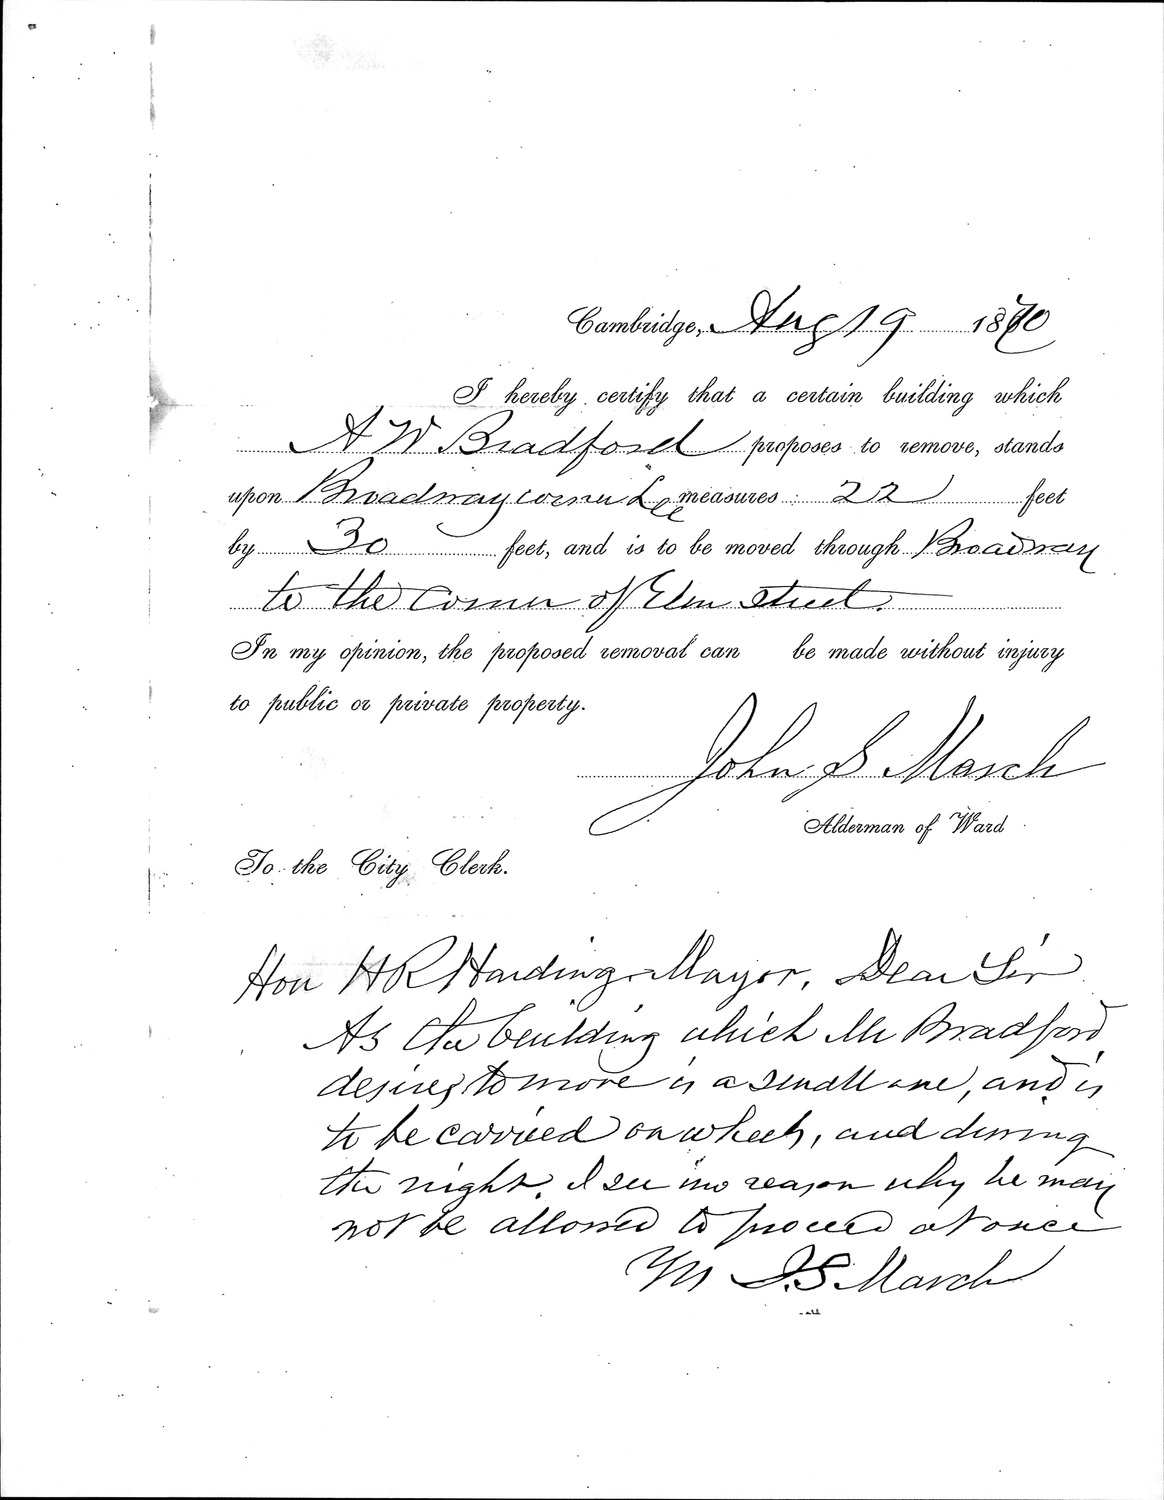 Cambridge, Aug 19 1870
I hereby certify that a certain building which
A W Bradford proposes to remove, stands
upon Broadway corner Lee measures 22 feet
by 30 feet, and is to be moved through Broadway
to the corner of Elm Street.
In my opinion, the proposed removal can be made without injury
to public or private property.
John S March
Alderman of Ward
To the City Clerk.
Hon H R Harding Mayor, Dear Sir
As the building which Mr Bradford
desires to move is a small one, and is
to be carried on wheels, and during
the night, I see no reason why he may
not be allowed to proceed at once
Yrs J. S March